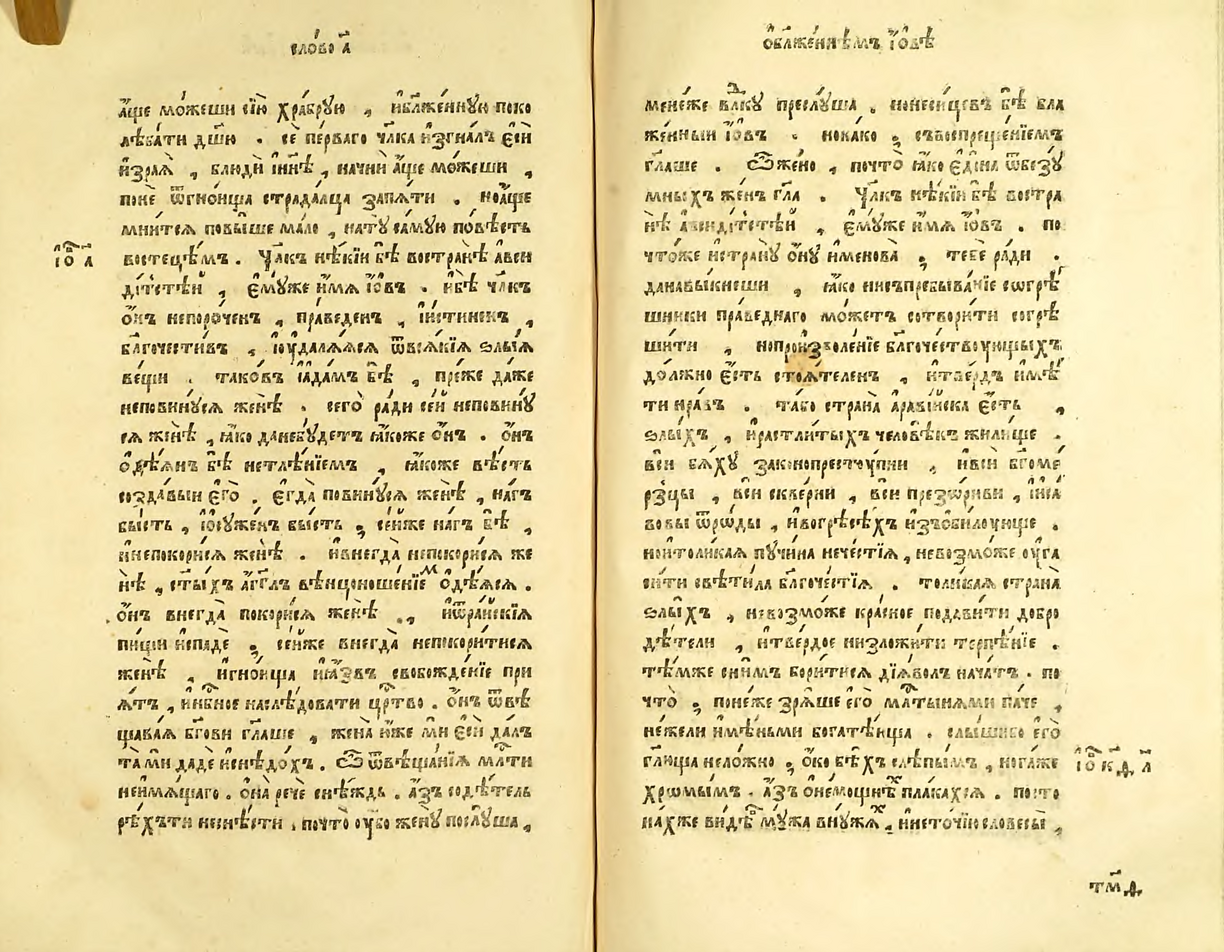 сло́во а҃
а҆́ще мо́жеши сїю̀ хра́брꙋю , и҆бл҃же́ннꙋю поко
лѣба́ти дш҃ю . сѐ пе́рваго чл҃ка и҆згна́лъ є҆сѝ
и҆зра́ѧ̀ , блюдѝ и҆нн҃ѣ , начнѝ а҆́ще мо́жеши ,
понѐ ѿгно́ища страда́лца запѧ́ти . но́а҆ще
мни́тсѧ повы́ше ма́ло , натꙋ̀ са́мꙋю по́вѣсть
востеце́мъ . Чл҃къ нѣ́кїи бѣ̀ востранѣ̀ а҆вси
ді́тстѣи , є҆мꙋ́же и҆́мѧ і҆́овъ . и҆бѣ̀ чл҃къ
і҆ѡ҃ а҃
о҆́нъ непоро́ченъ , пра́веденъ , и҆́истиненъ ,
бл҃гочести́въ , и҆оу҆далѧ́ѧсѧ ѿвсѧ́кїѧ ѕлы́ѧ
ве́щи . тако́въ и҆а҆да́мъ бѣ̀ , пре́же да́же
непови́нꙋсѧ женѣ̀ . сего̀ ра́ди се́и непови́нꙋ
сѧ женѣ̀ , ꙗ҆́ко данебꙋ́детъ ꙗ҆́коже о҆́нъ . о҆́нъ
о҆дѣ́ѧнъ бѣ̀ нетлѣ́нїемъ , ꙗ҆́коже вѣ́сть
созда́выи є҆го̀ . є҆гда̀ пови́нꙋсѧ женѣ̀ , на́гъ
бы́сть , и҆о҆сꙋжде́нъ бы́сть , се́йже на́гъ бѣ̀ ,
и҆непокори́сѧ женѣ̀ . и҆внегда̀ непокори́сѧ же
нѣ̀ , ст҃ы́хъ а҆́гг҃лъ вѣнцоноше́нїемъ о҆дѣ́ѧсѧ .
о҆́нъ внегда̀ покори́сѧ женѣ̀ , и҆ѿра́искїѧ
пи́щи и҆спадѐ , се́йже внегда̀ непокори́тисѧ
женѣ̀ , и҆гно́ища и҆ꙗ҆́звъ свобожде́нїе прі
ѧ́тъ , и҆нбⷭ҇ное наслѣ́довати црⷭ҇тво . о҆́нъ ѿвѣ
щава́ѧ бг҃ови гл҃аше , жена̀ ю҆́же ми є҆сѝ да́лъ
та́ ми дадѐ и҆снѣ́дохъ . Ѽ ѿвѣща́нїѧ млⷭ҇ти
неимꙋ́щаго . о҆на̀ речѐ снѣ́ждь . а҆́зъ содѣ́тель
рѣ́хъ ти неснѣ́сти , почто̀ оу҆́бо женꙋ̀ послꙋ́ша ,
о҆бл҃же́ннѣмъ і҆́овѣ
мене́же влⷣкꙋ преслꙋ́ша . нонеси́цевъ бѣ̀ бла
же́нныи і҆́овъ . нока́ко , совоспреще́нїемъ
гл҃аше . Ѽже́но , почто̀ ꙗ҆́ко є҆ди́на ѿбезꙋ́
мныхъ же́нъ гл҃а . Чл҃къ нѣ́кїи бѣ̀ востра
нѣ̀ а҆всиді́тстѣи , є҆мꙋ́же и҆́мѧ і҆́овъ . по
что́же и҆странꙋ̀ о҆́нꙋ и҆менова̀ , тебѐ ра́ди .
данавы́кнеши , ꙗ҆́ко нисъпребыва́нїе согрѣ́
шники пра́веднаго мо́жетъ сотвори́ти согрѣ
ши́ти , нопроизволе́нїе бл҃гоче́ствоующыхъ
до́лжно є҆́сть стоѧ́телѐнъ , и҆тве́рдъ и҆мѣ́
ти нра́въ . та́бо страна̀ ара́війска є҆́сть ,
ѕлы́хъ , и҆растли́тыхъ человѣ́къ жили́ще .
вси̑ бѧ́хꙋ законопрестоу́пнии , и҆вси̑ бг҃оме́
рзцы , вси̑ скве́рни , вси̑ презо́риви , и҆и҆са́
вовы ѿро́ды , и҆вогрѣсѣ́хъ и҆зоби́лоующе .
нои҆толи́каѧ пꙋчи́на нече́стїѧ , невозмо́же оу҆га
си́ти свѣти́ла бл҃гоче́стїѧ . толи́каѧ страна̀
ѕлы́хъ , невозмо́же кра́сное подави́ти добро
дѣ́тели , и҆тве́рдое низложи́ти терпѣ́нїе .
тѣ́мже сни́мъ бори́тисѧ дїѧ́волъ нача́тъ . по
что̀ , поне́же зрѧ́ше є҆го̀ млⷭ҇тынѧми па́че ,
не́жели и҆мѣ́ньми богатѣ́юща . слы́шибо є҆го̀
гл҃юща нело́жно , о҆́ко бѣ́хъ слѣпы́мъ , нога́же
хромы́мъ . а҆́зъ о҆немощны́хъ пла́кахсѧ . по́сто
на́хже ви́дѣвъ мꙋ́жа внꙋ́жахъ , нисто́чїю словесы̀ ,
і҆ѡ҃ к҃д , л҃
тм҃д